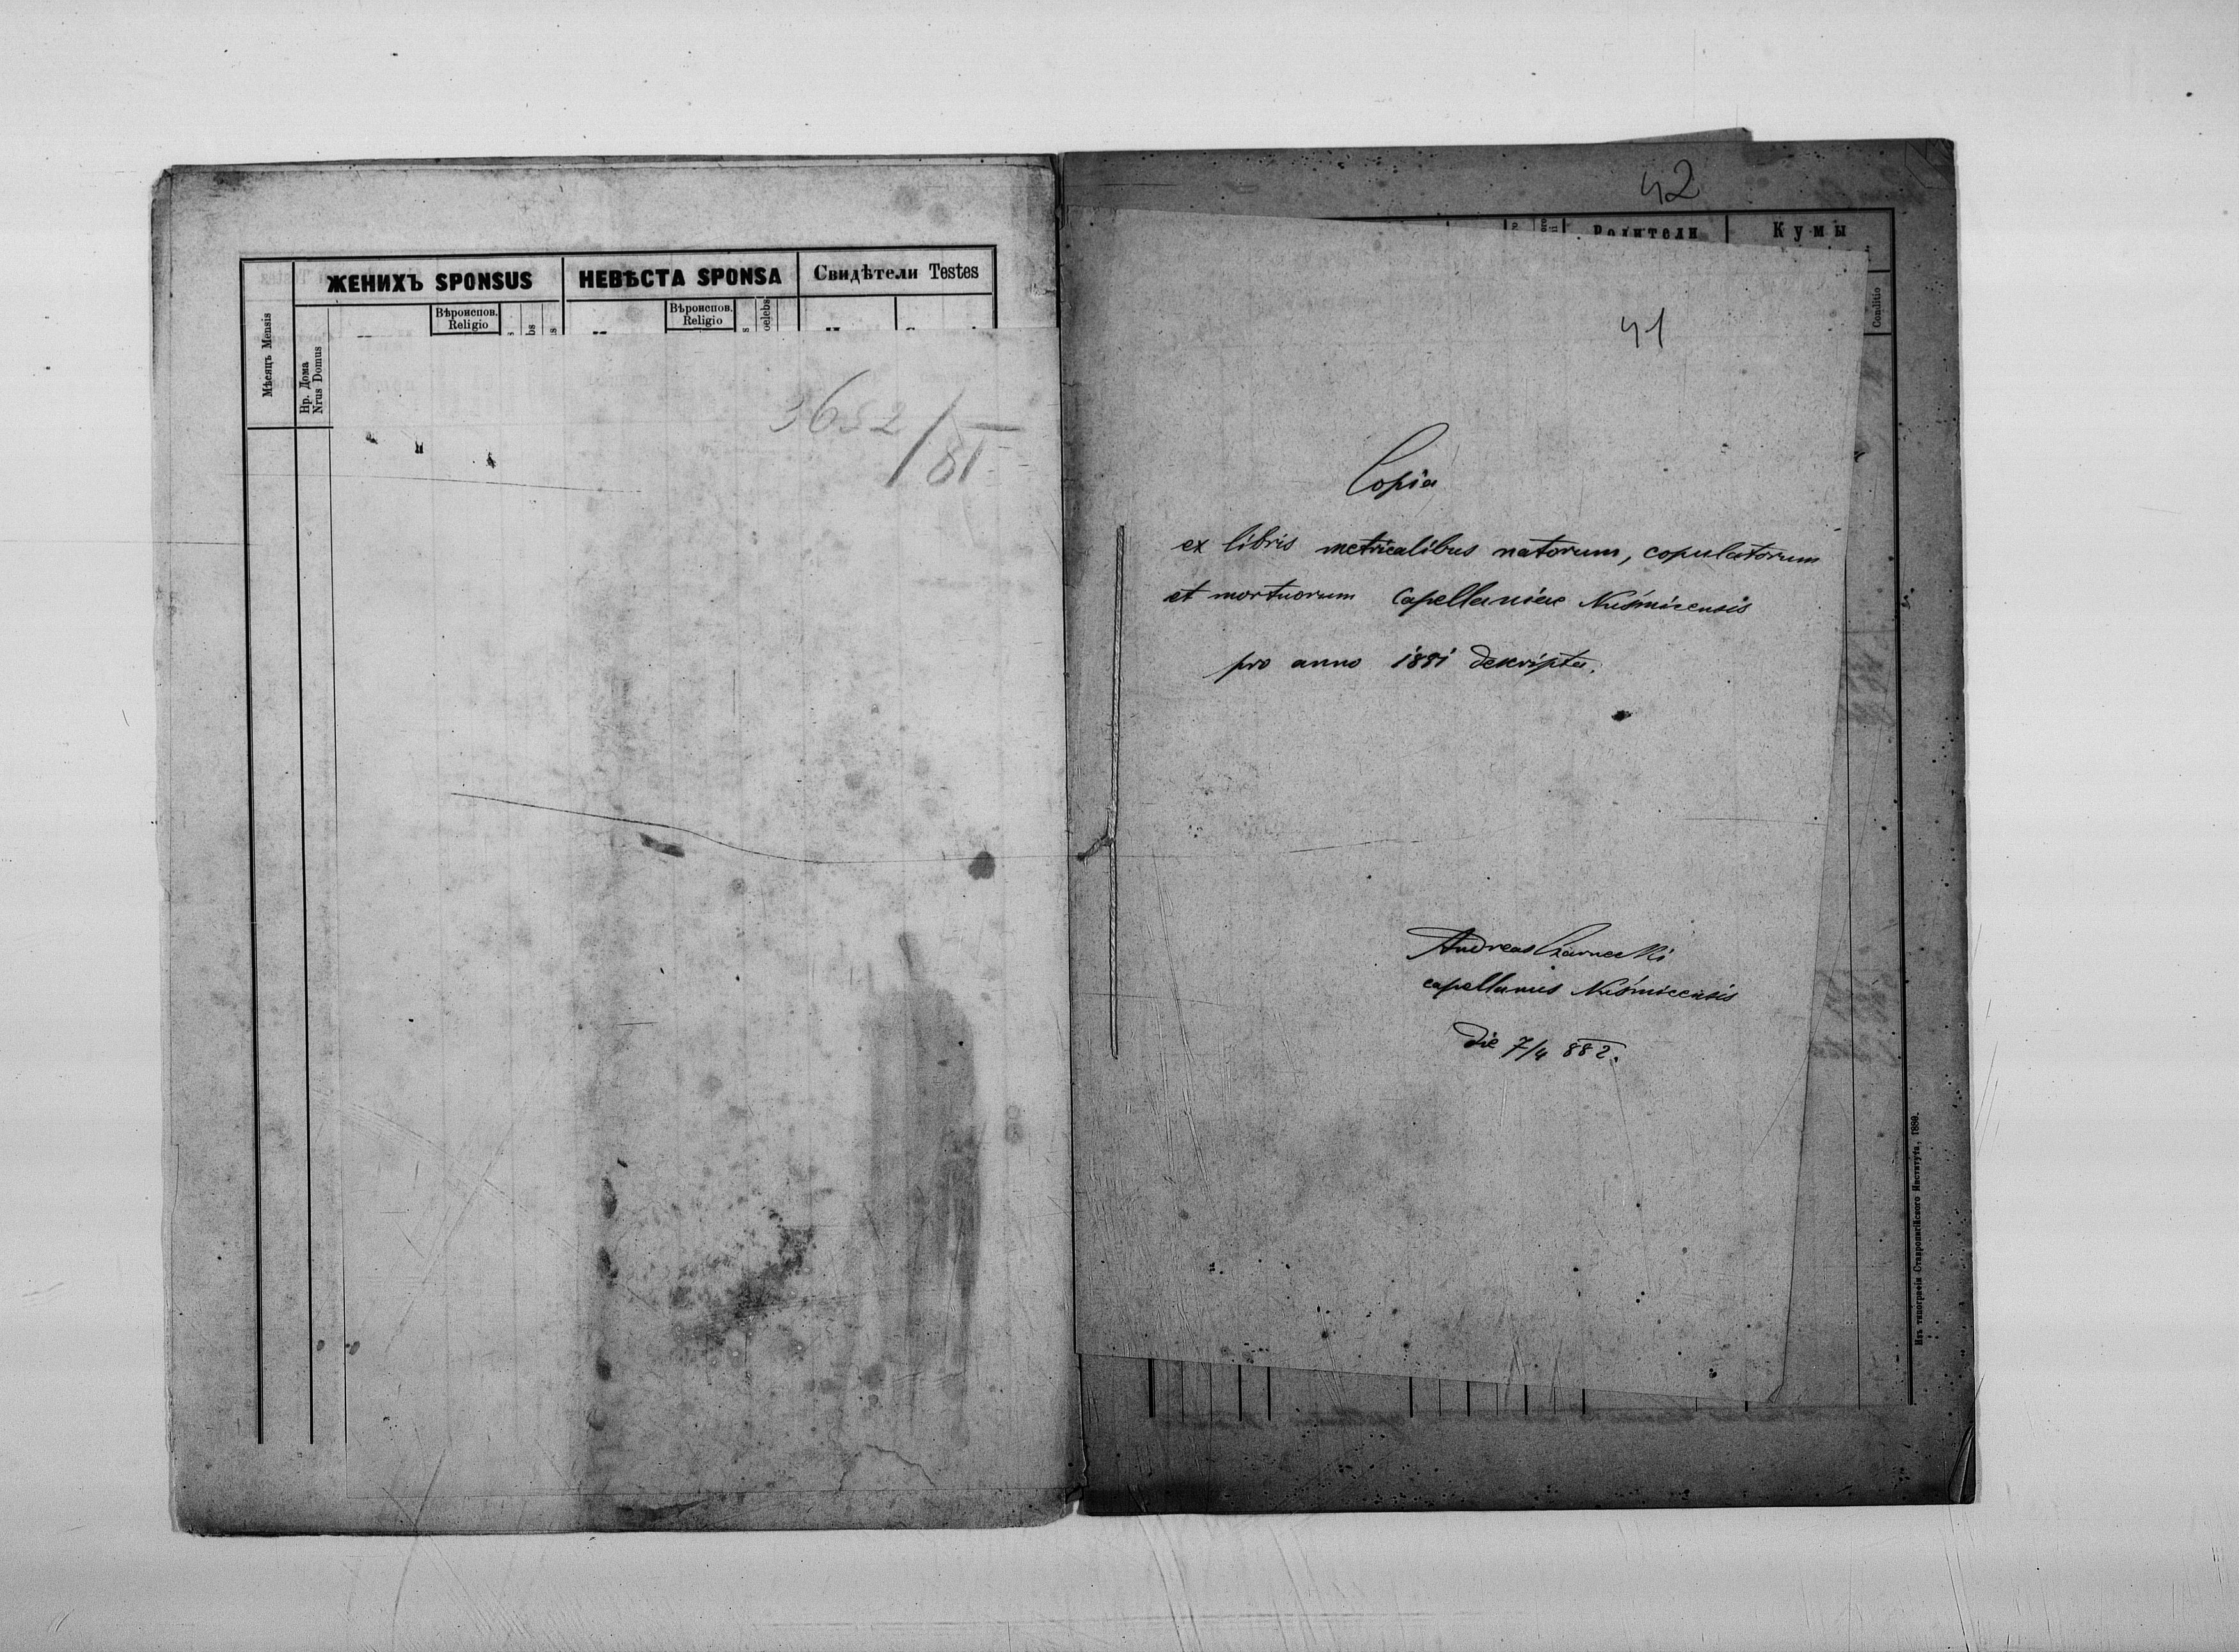 ЖЕНИХЪ SPONSUS
НЕВѢСТА SPONSA
Свидѣтели Testes
Мѣсяцъ Mensis
Нр. Дома
Nrus Domus
Вѣроиспов.
Religio
Вѣроиспов.
Religio
oelebs
3682/81
42
Родители
Кумы
Conditio
41
Copia
ex libris metricalibus natorum, copulatorum
et mortuorum Capellaniae Kuśmicensis
pro anno 1881 descripta.
Andreas Czarnecki
capellanus Kuśmicensis
die 7/4 882.
Изъ типографіи Ставропигійского Института, 1880.